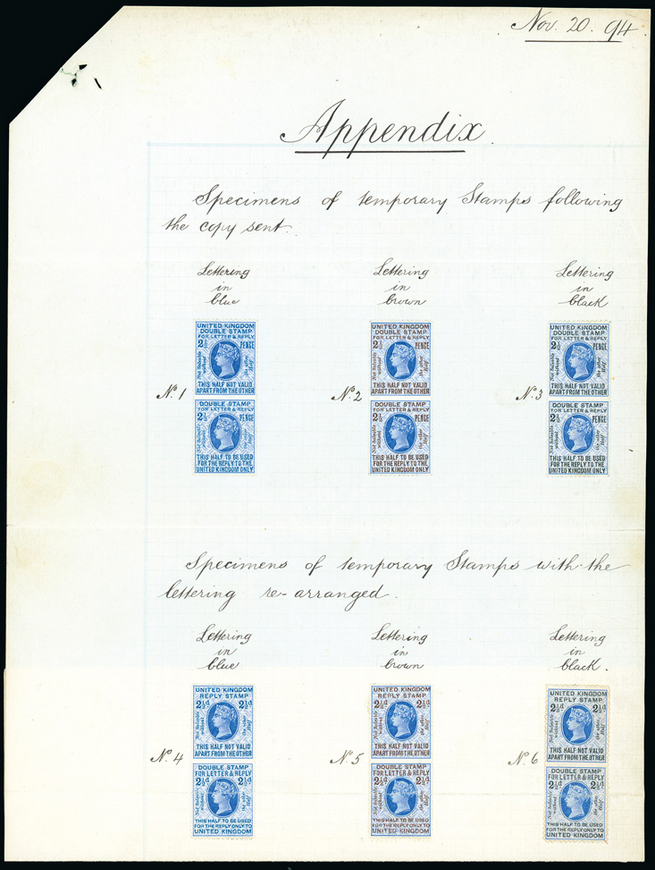 Nov. 20. 94.
Appendix.
Specimens of temporary Stamps following
the copy sent.
Lettering in blue
Lettering in brown
Lettering in black
Nº 1
UNITED KINGDOM
DOUBLE STAMP
FOR LETTER & REPLY
2½ PENCE
Not Valuable without the other Half
THIS HALF NOT VALID
APART FROM THE OTHER
DOUBLE STAMP
FOR LETTER & REPLY
2½ PENCE
Not Valuable without the other Half
THIS HALF TO BE USED
FOR THE REPLY TO THE
UNITED KINGDOM ONLY
Nº 2
UNITED KINGDOM
DOUBLE STAMP
FOR LETTER & REPLY
2½ PENCE
Not Valuable without the other Half
THIS HALF NOT VALID
APART FROM THE OTHER
DOUBLE STAMP
FOR LETTER & REPLY
2½ PENCE
Not Valuable without the other Half
THIS HALF TO BE USED
FOR THE REPLY TO THE
UNITED KINGDOM ONLY
Nº 3
UNITED KINGDOM
DOUBLE STAMP
FOR LETTER & REPLY
2½ PENCE
Not Valuable without the other Half
THIS HALF NOT VALID
APART FROM THE OTHER
DOUBLE STAMP
FOR LETTER & REPLY
2½ PENCE
Not Valuable without the other Half
THIS HALF TO BE USED
FOR THE REPLY TO THE
UNITED KINGDOM ONLY
Specimens of temporary Stamps with the
lettering re-arranged.
Lettering in blue
Lettering in brown
Lettering in black.
Nº 4
UNITED KINGDOM
REPLY STAMP
2½d 2½d
without the other
THIS HALF NOT VALID
APART FROM THE OTHER
DOUBLE STAMP
FOR LETTER & REPLY
2½d 2½d
without the other Half
THIS HALF TO BE USED
FOR THE REPLY ONLY TO
UNITED KINGDOM
Nº 5
UNITED KINGDOM
REPLY STAMP
2½d 2½d
without the other
THIS HALF NOT VALID
APART FROM THE OTHER
DOUBLE STAMP
FOR LETTER & REPLY
2½d 2½d
without the other Half
THIS HALF TO BE USED
FOR THE REPLY ONLY TO
UNITED KINGDOM
Nº 6
UNITED KINGDOM
REPLY STAMP
2½d 2½d
without the other
THIS HALF NOT VALID
APART FROM THE OTHER
DOUBLE STAMP
FOR LETTER & REPLY
2½d 2½d
without the other Half
THIS HALF TO BE USED
FOR THE REPLY ONLY TO
UNITED KINGDOM